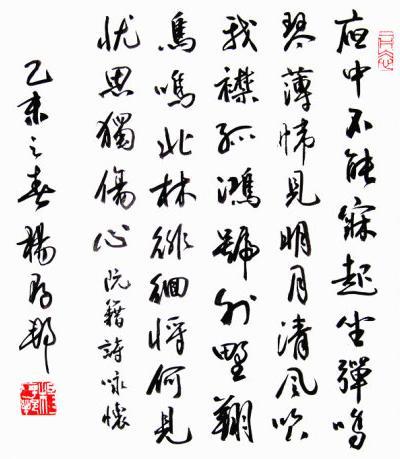 夜中不能寐起坐彈鳴
琴薄帷見明月清風吹
我襟孤鴻號外野翔
鳥鳴北林徘徊將何見
忧思獨傷心 阮籍詩咏懷
乙未之春楊邦